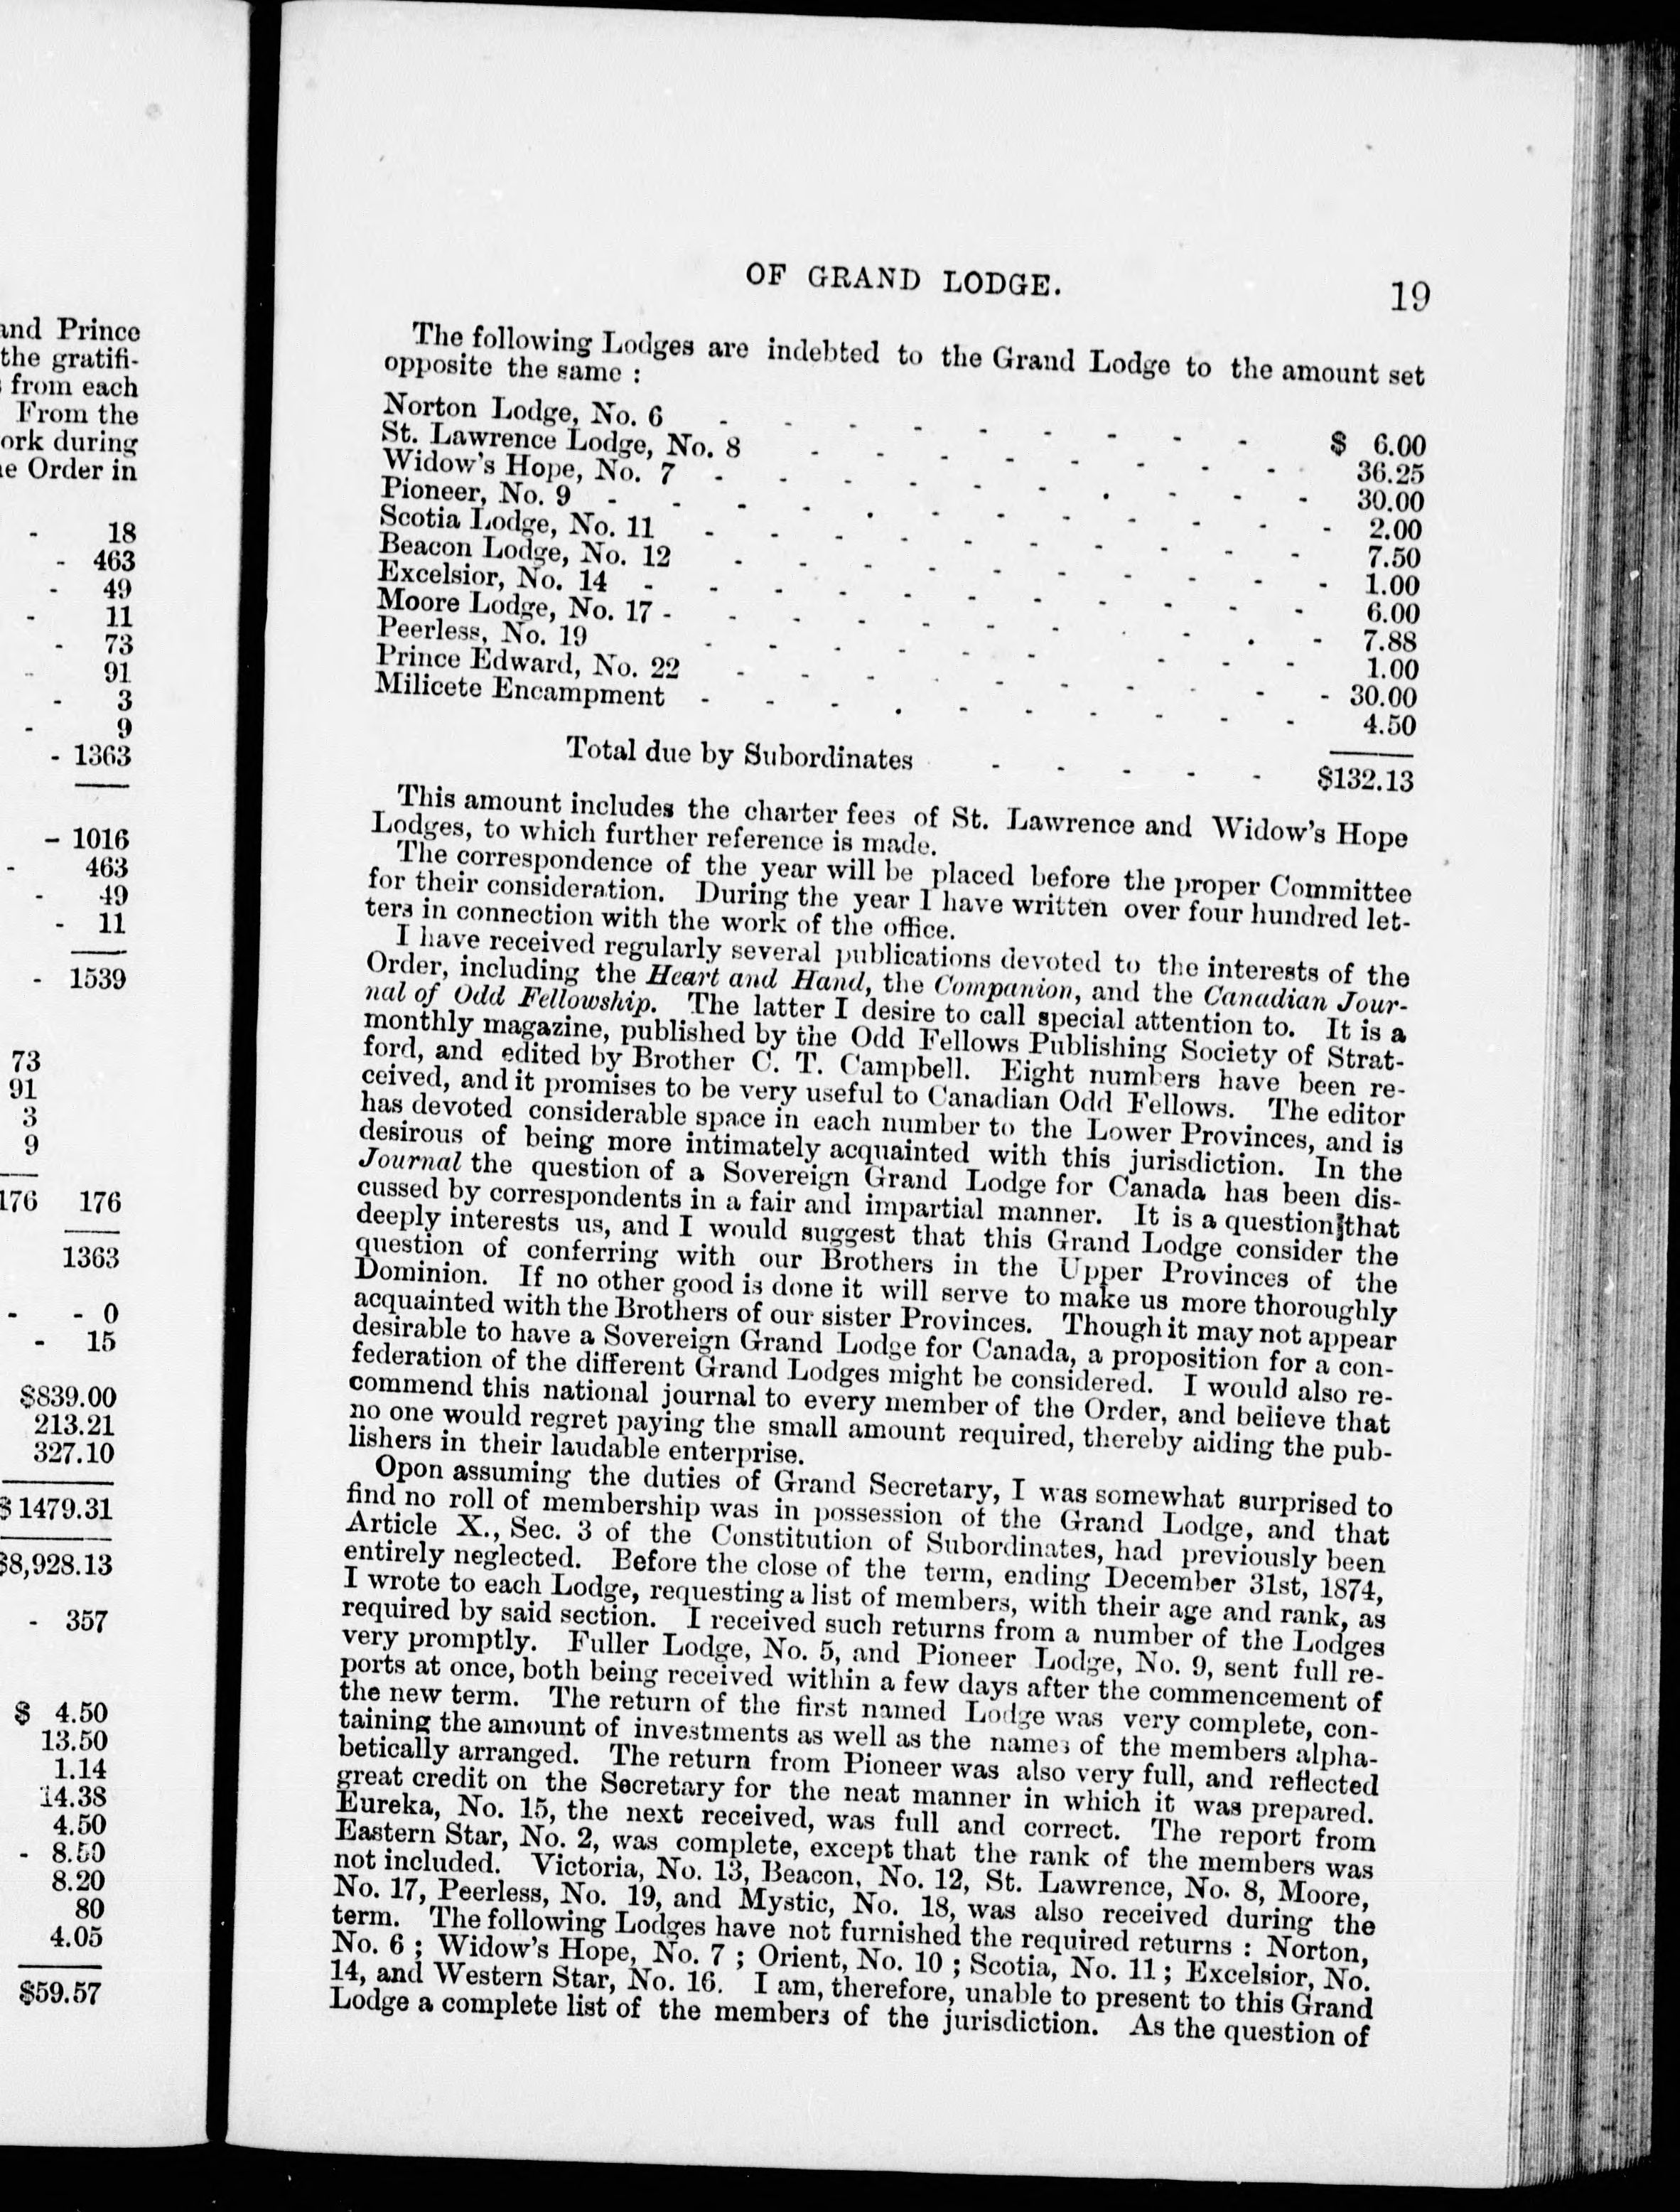 and Prince
the gratifi-
from each
From the
ork during
e Order in
- 18
- 463
- 49
- 11
- 73
- 91
- 3
- 9
- 1363
- 1016
- 463
- 49
- 11
- 1539
73
91
3
9
176 176
1363
- - 0
- 15
$839.00
213.21
327.10
$1479.31
$8,928.13
- 357
$ 4.50
13.50
1.14
14.38
4.50
- 8.50
8.20
80
4.05
$59.57
OF GRAND LODGE. 19
The following Lodges are indebted to the Grand Lodge to the amount set
opposite the same :
Norton Lodge, No. 6 - - - - - - - - - $ 6.00
St. Lawrence Lodge, No. 8 - - - - - - - - 36.25
Widow's Hope, No. 7 - - - - - - - - - - 30.00
Pioneer, No. 9 - - - - - - - - - - - - 2.00
Scotia Lodge, No. 11 - - - - - - - - - - 7.50
Beacon Lodge, No. 12 - - - - - - - - - - 1.00
Excelsior, No. 14 - - - - - - - - - - - 6.00
Moore Lodge, No. 17 - - - - - - - - - - - 7.88
Peerless, No. 19 - - - - - - - - - - 1.00
Prince Edward, No. 22 - - - - - - - - - - 30.00
Milicete Encampment - - - - - - - - - - 4.50
Total due by Subordinates - - - - - $132.13
This amount includes the charter fees of St. Lawrence and Widow's Hope
Lodges, to which further reference is made.
The correspondence of the year will be placed before the proper Committee
for their consideration. During the year I have written over four hundred let-
ters in connection with the work of the office.
I have received regularly several publications devoted to the interests of the
Order, including the Heart and Hand, the Companion, and the Canadian Jour-
nal of Odd Fellowship. The latter I desire to call special attention to. It is a
monthly magazine, published by the Odd Fellows Publishing Society of Strat-
ford, and edited by Brother C. T. Campbell. Eight numbers have been re-
ceived, and it promises to be very useful to Canadian Odd Fellows. The editor
has devoted considerable space in each number to the Lower Provinces, and is
desirous of being more intimately acquainted with this jurisdiction. In the
Journal the question of a Sovereign Grand Lodge for Canada has been dis-
cussed by correspondents in a fair and impartial manner. It is a question that
deeply interests us, and I would suggest that this Grand Lodge consider the
question of conferring with our Brothers in the Upper Provinces of the
Dominion. If no other good is done it will serve to make us more thoroughly
acquainted with the Brothers of our sister Provinces. Though it may not appear
desirable to have a Sovereign Grand Lodge for Canada, a proposition for a con-
federation of the different Grand Lodges might be considered. I would also re-
commend this national journal to every member of the Order, and believe that
no one would regret paying the small amount required, thereby aiding the pub-
lishers in their laudable enterprise.
Opon assuming the duties of Grand Secretary, I was somewhat surprised to
find no roll of membership was in possession of the Grand Lodge, and that
Article X., Sec. 3 of the Constitution of Subordinates, had previously been
entirely neglected. Before the close of the term, ending December 31st, 1874,
I wrote to each Lodge, requesting a list of members, with their age and rank, as
required by said section. I received such returns from a number of the Lodges
very promptly. Fuller Lodge, No. 5, and Pioneer Lodge, No. 9, sent full re-
ports at once, both being received within a few days after the commencement of
the new term. The return of the first named Lodge was very complete, con-
taining the amount of investments as well as the names of the members alpha-
betically arranged. The return from Pioneer was also very full, and reflected
great credit on the Secretary for the neat manner in which it was prepared.
Eureka, No. 15, the next received, was full and correct. The report from
Eastern Star, No. 2, was complete, except that the rank of the members was
not included. Victoria, No. 13, Beacon, No. 12, St. Lawrence, No. 8, Moore,
No. 17, Peerless, No. 19, and Mystic, No. 18, was also received during the
term. The following Lodges have not furnished the required returns : Norton,
No. 6 ; Widow's Hope, No. 7 ; Orient, No. 10 ; Scotia, No. 11 ; Excelsior, No.
14, and Western Star, No. 16. I am, therefore, unable to present to this Grand
Lodge a complete list of the members of the jurisdiction. As the question of